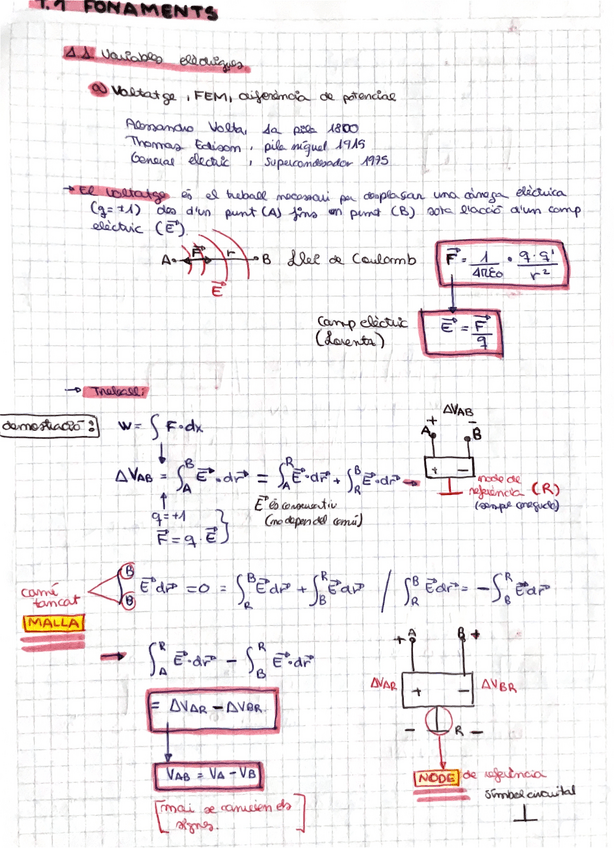 1.1 FONAMENTS
1.1. Variables elèctriques
a) Voltatge, FEM, diferència de potencial
Alessandro Volta, 1a pila 1800
Thomas Edison, pila níquel 1915
General electric, supercondensador 1975
→ El voltatge és el treball necessari per desplaçar una càrrega elèctrica
(q=+1) des d'un punt (A) fins un punt (B) sota l'acció d'un camp
elèctric (E⃗).
A F⃗ r B Llei de Coulomb
E⃗
F⃗ = 1/4πε₀ · q·q'/r²
Camp elèctric
(Lorentz)
E⃗ = F⃗/q
→ Treball:
demostració: W = ∫ F·dx
ΔV_AB = ∫_A^B E⃗·dr⃗ = ∫_A^R E⃗·dr⃗ + ∫_R^B E⃗·dr⃗ →
q=+1
F⃗ = q·E⃗
E⃗ és conservatiu
(no depèn del camí)
ΔV_AB
+ -
A B
+ -
node de
referència (R)
(sempre coneguda)
camí
tancat
MALLA
∫_B^B E⃗dr⃗ = 0 = ∫_R^B E⃗dr⃗ + ∫_B^R E⃗dr⃗ / ∫_R^B E⃗dr⃗ = -∫_B^R E⃗dr⃗
→ ∫_A^R E⃗·dr⃗ - ∫_B^R E⃗·dr⃗
= ΔV_AR - ΔV_BR
V_AB = V_A - V_B
[mai se canvien els
signes.]
+ A B +
ΔV_AR + - ΔV_BR
- R -
NODE de referència
símbol circuital